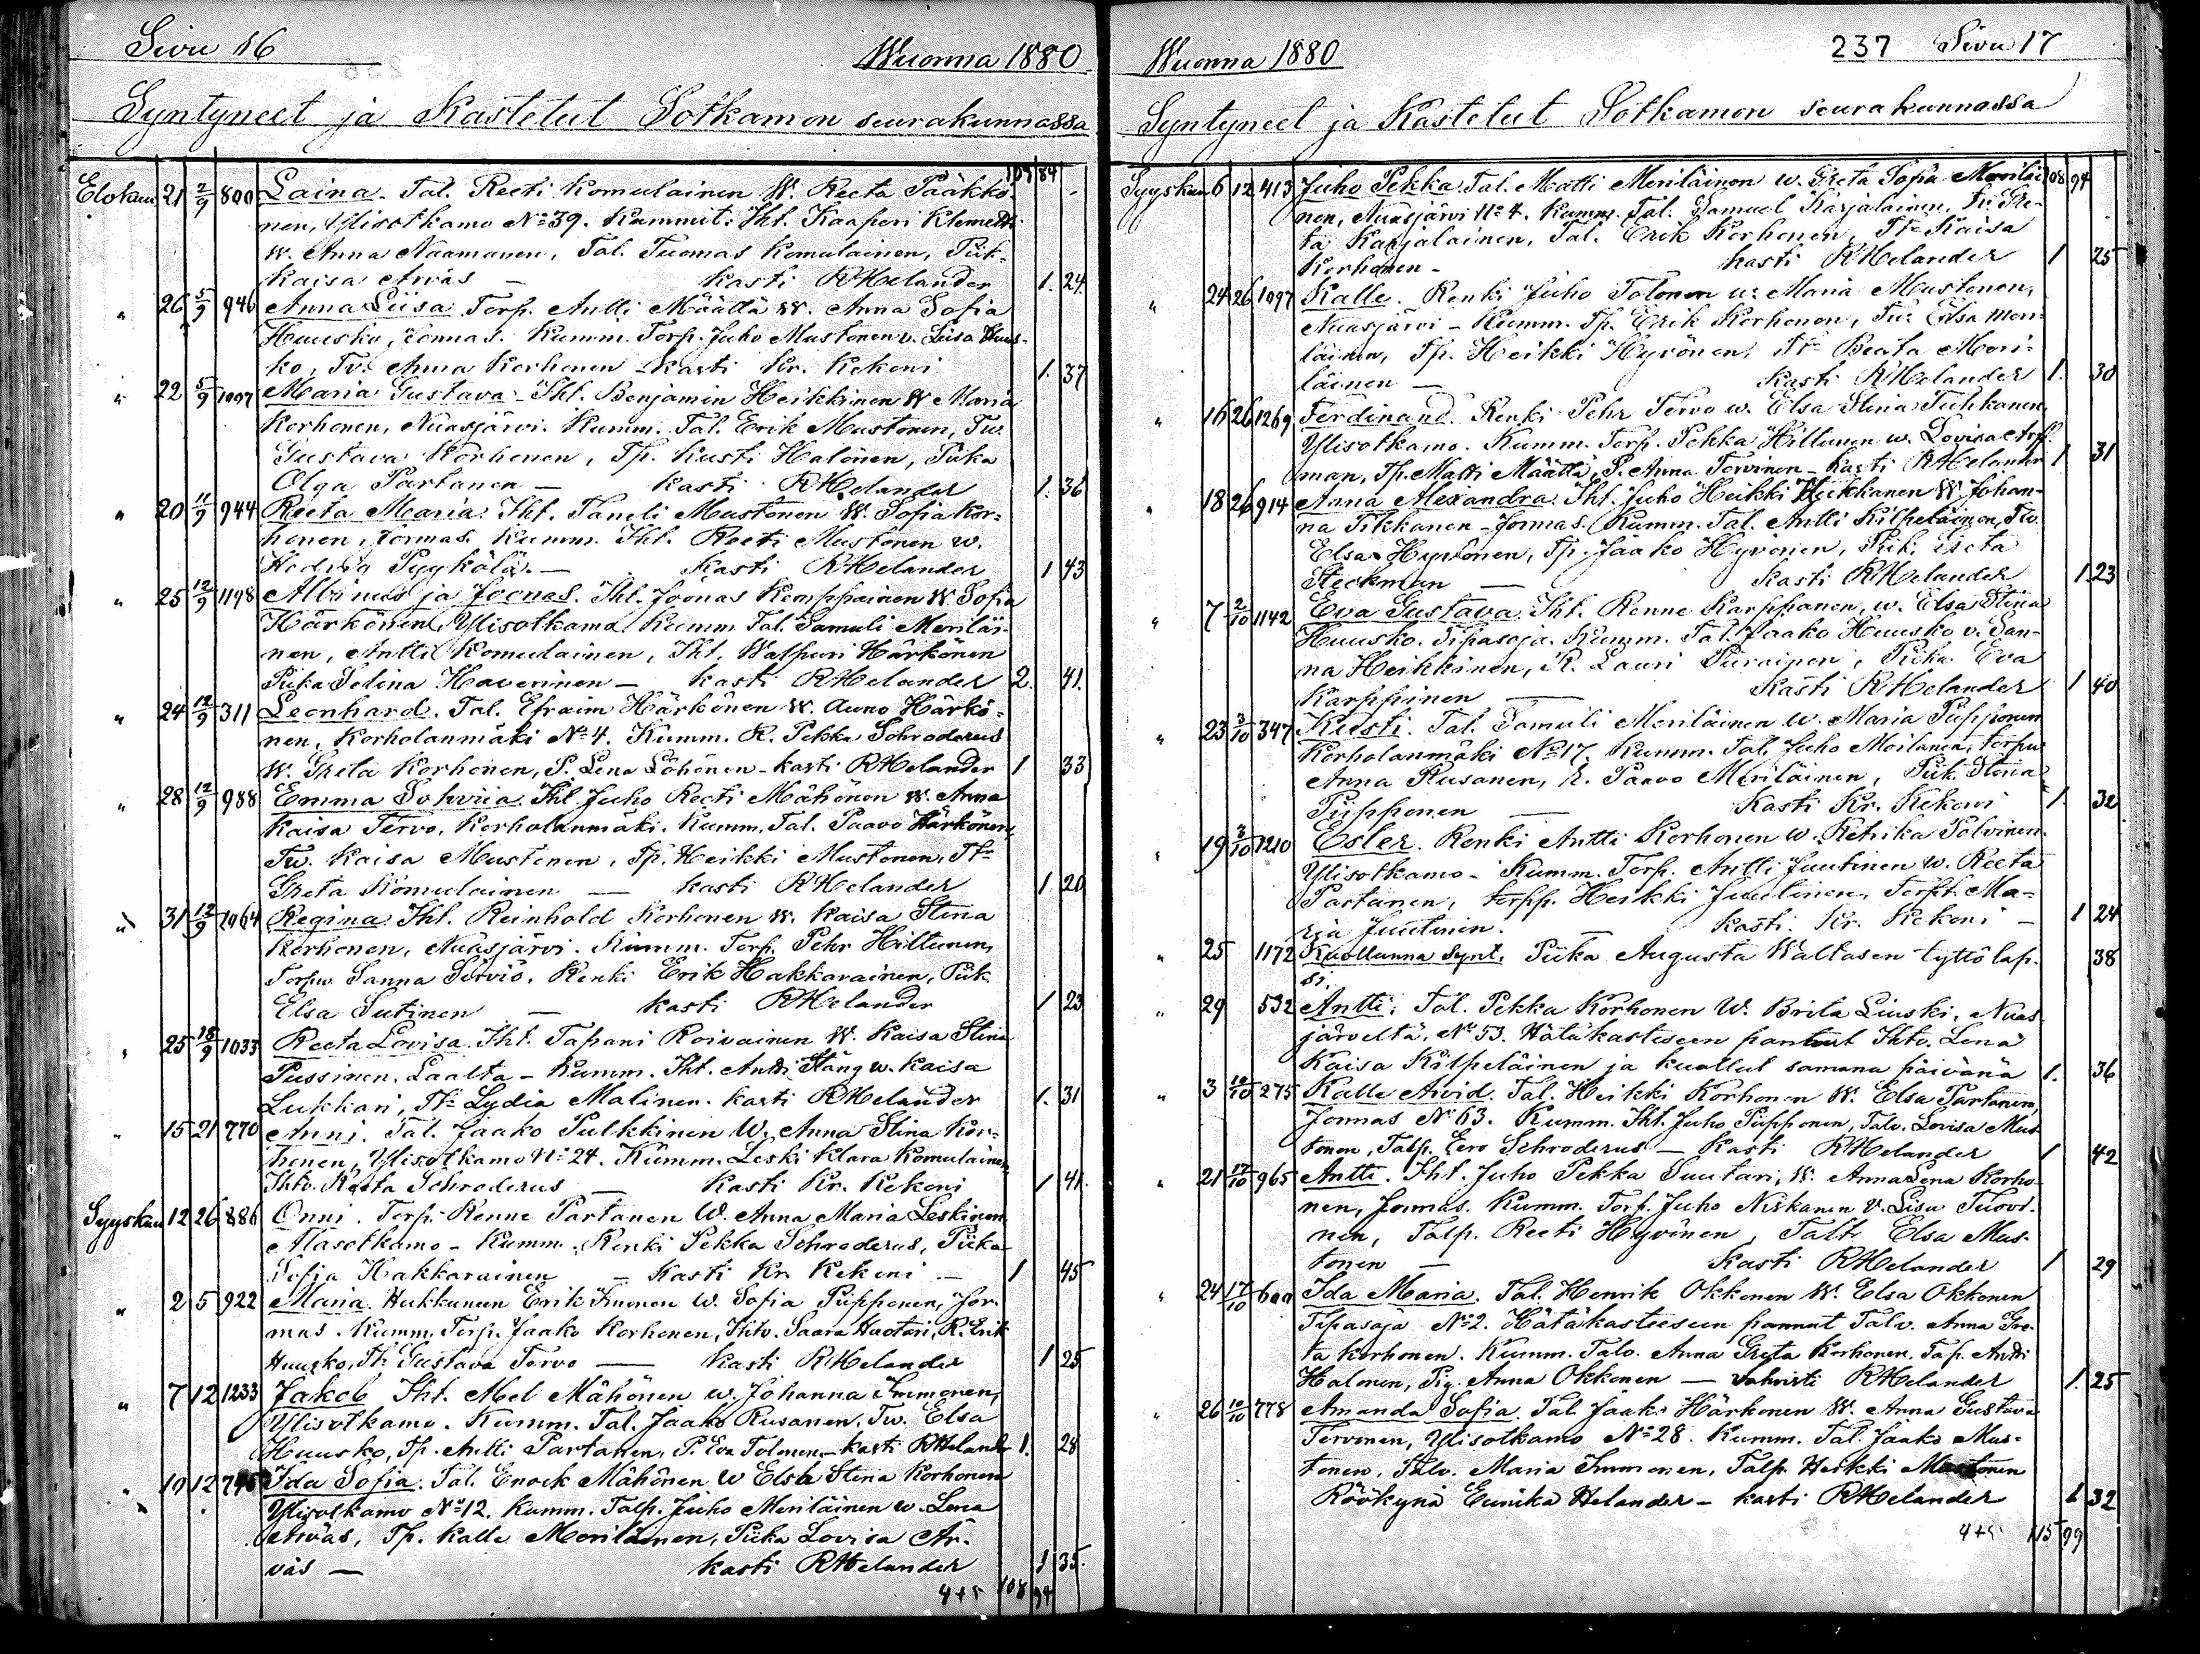 Sivu 16
Wuonna 1880
Syntyneet ja Kastetut Sotkamon seurakunnassa
103 84
Elokuu 21 2/9 800 Laina. Tal. Reeti Komulainen W. Reeta Pääkkö-
nen, Ylisotkamo No 39. Kummit: Iht. Kaaperi Klemetti
w. Anna Naamanen, Tal. Tuomas Komulainen, Piik.
Kaisa Arväs — kasti RHelander 1. 24.
" 26 5/9 946 Anna Liisa Torp. Antti Määttä W. Anna Sofia
Huusko, Jormas. Kumm. Torp. Juho Mustonen v. Liisa Huus-
ko, Tv. Anna Korhonen – kasti Kr. Kekoni 1. 37
" 22 5/9 1097 Maria Gustava – Iht. Benjamin Heikkinen W Maria
Korhonen, Nuasjärvi. Kumm. Tal. Erik Mustonen, Tw.
Gustava Korhonen, Tp. Kusti Halonen, Piika
Olga Partanen — kasti RHelander 1. 36
" 20 11/9 944 Reeta Maria. Iht. Taneli Mustonen W. Sofia Kor-
honen, Jormas. Kumm. Iht. Reeti Mustonen w.
Hedwig Pyykölä. — Kasti RHelander 1 43
" 25 12/9 1198 Albinus ja Joonas. Iht. Joonas Kemppainen W. Sofia
Härkönen, Ylisotkamo. Kumm Tal. Samuli Meriläi-
nen, Antti Komulainen, Iht. Walpuri Härkönen
Piika Selina Haverinen — kasti RHelander 2. 41.
" 24 12/9 311 Leonhard. Tal. Efraim Härkönen W. Auno Härkö-
nen, Korholanmäki No 4. Kumm. R. Pekka Schroderus
W. Greta Korhonen, P. Lena Löhönen – kasti RHelander 1 33
" 28 12/9 988 Emma Sohviia. Iht. Juho Reeti Mähönen W. Anna
Kaisa Tervo, Korholanmäki. Kumm. Tal. Paavo Härkönen,
Tw. Kaisa Mustonen, Tp. Heikki Mustonen, Tt.
Greta Komulainen — kasti RHelander 1 20
" 31 12/9 1064 Regina Iht. Reinhold Korhonen W. Kaisa Stina
Korhonen, Nuasjärvi. Kumm. Torp. Pehr Hiltunen,
Torpw. Sanna Servio. Renki Erik Hakkarainen, Piik.
Elsa Sutinen — kasti RHelander 1 23
" 25 18/9 1033 Reeta Lovisa. Iht. Tapani Roivainen W. Kaisa Stina
Pussinen. Laalta – Kumm. Iht. Antti Stång w. Kaisa
Lukkari, Tt. Lydia Malinen. kasti RHelander 1. 31
" 15 21 770 Anni. Tal. Jaako Pulkkinen W. Anna Stina Kor-
honen, Ylisotkamo No 24. Kumm. Leski Klara Komulainen
Ihtv. Reeta Schroderus — Kasti Kr. Kekoni 1 41.
Syyskuu 12 26 886 Onni. Torp. Renne Partanen W. Anna Maria Leskinen
Alasotkamo – Kumm. Renki Pekka Schroderus, Piika
Sofia Hakkarainen – Kasti Kr. Kekoni — 1 45
" 2 5 922 Maria. Erik Immonen W. Sofia Piipponen, Jor-
mas. Kumm. Torp. Jaako Korhonen, Ihtv. Saara Huotari, R. Erik
Huusko, Tt. Gustava Tervo — Kasti RHelander 1 25
" 7 12 1233 Jakob Iht. Abel Mähönen w. Johanna Immonen,
Ylisotkamo. Kumm. Tal. Jaako Rusanen. Tw. Elsa
Huusko, Tp. Antti Partanen, P. Eva Tolonen – kasti RHelander 1. 28
" 10 12 746 Ida Sofia. Tal. Enock Mähönen W Elsa Stina Korhonen
Ylisotkamo No 12. Kumm. Talp. Juho Meriläinen w. Lena
Arväs, Tp. Kalle Meriläinen, Piika Lovisa Är-
väs — kasti RHelander 1 35.
4+5 108 94
Wuonna 1880
237 Sivu 17
Syntyneet ja Kastetut Sotkamon seurakunnassa
Syyskuu 6 12 413 Juho Pekka Tal. Matti Meriläinen w. Greta Sofia Meriläi- 108 94
nen, Nuasjärvi No 4. Kumm. Tal. Samuel Karjalainen. Gre-
ta Karjalainen, Tal. Erik Korhonen, Tt. Kaisa
Korhonen – kasti RHelander 1 25
" 24 26 1097 Kalle. Renki Juho Tolonen w. Maria Mustonen,
Nuasjärvi – Kumm. Tp. Erik Korhonen, Tw. Elsa Meri-
läinen, Tp. Heikki Hyvönen, Tt. Beata Meri-
läinen — Kasti RHelander 1. 30
" 16 26 1269 Ferdinand. Renki Pehr Tervo w. Elsa Stina Tuhkanen,
Ylisotkamo. Kumm. Torp. Pekka Hiltunen w. Lovisa Arf-
man, Tp. Matti Määttä, P. Anna Tervinen – kasti RHelander 1 31
" 18 26 914 Anna Alexandra. Iht. Juho Heikki Heikkanen W. Johan-
na Pikkanen – Jormas. Kumm. Tal. Antti Kilpeläinen, Tw.
Elsa Hyvönen, Tp. Jaako Hyvönen, Piik. Greta
Steckman — Kasti RHelander 1 23
" 7 2/10 1142 Eva Gustava. Iht. Renne Karppanen, w. Elsa Stina
Huusko. Tipasoja. Kumm. Tal. Jaako Huusko v. San-
na Heikkinen, R. Lauri Piirainen, Piika Eva
Karppinen — Kasti RHelander 1 40
" 23 3/10 347 Kusti. Tal. Samuli Meriläinen w. Maria Piipponen
Korholanmäki No 17. Kumm. Tal. Juho Moilanen, torpw
Anna Rusanen, r. Paavo Meriläinen, Piik. Stena
Piipponen — Kasti Kr. Kekoni 1. 32
" 19 3/10 1210 Ester. Renki Antti Korhonen w. Retrika Polvinen
Ylisotkamo – Kumm. Torp. Antti Juutinen w. Reeta
Partanen, torpp. Heikki Juutinen, Torpt. Ma-
ria Juutinen. — kasti. Kr. Kekoni – 1 24
" 25 1172 Kuollunna Synt. Piika Augusta Waltasen tyttölap- 38
si.
" 29 532 Antti. Tal. Pekka Korhonen W. Brita Liuski, Nuas-
järveltä, No 53. Hätäkasteseen pannut Ihtv. Lena
Kaisa Kilpeläinen ja kuollut samana päivänä 1. 36
" 3 10/10 275 Kalle Arvid. Tal. Heikki Korhonen W. Elsa Partanen,
Jormas No 63. Kumm. Iht. Juho Piipponen, Talv. Lovisa Mus-
tonen, Talp. Eero Schroderus — Kasti RHelander 1 42
" 21 17/10 965 Antti. Iht. Juho Pekka Suutari, W. Anna Lena Korho-
nen, Jormas. Kumm. Torp. Juho Niskanen v. Lisa Tuovi-
nen, Talp. Reeti Hyvönen, Talt. Elsa Mus-
tonen — Kasti RHelander 1 29
" 24 17/10 600 Ida Maria. Tal. Henrik Okkonen W. Elsa Okkonen
Tipasoja No 2. Hätäkasteseen pannut Talv. Anna Gre-
ta Korhonen. Kumm. Talv. Anna Greta Korhonen, Tap. Antti
Halonen, Pig. Anna Okkonen — vahvisti RHelander 1. 25
" 26 10/10 778 Amanda Sofia. Tal. Jaak. Härkönen W. Anna Gustava
Tervonen, Ylisotkamo No 28. Kumm. Tal. Jaako Mus-
tonen, Talv. Maria Immonen, Talp. Heikki Mustonen
Röökynä Eunika Helander – kasti RHelander 1 32
4+5 115 99